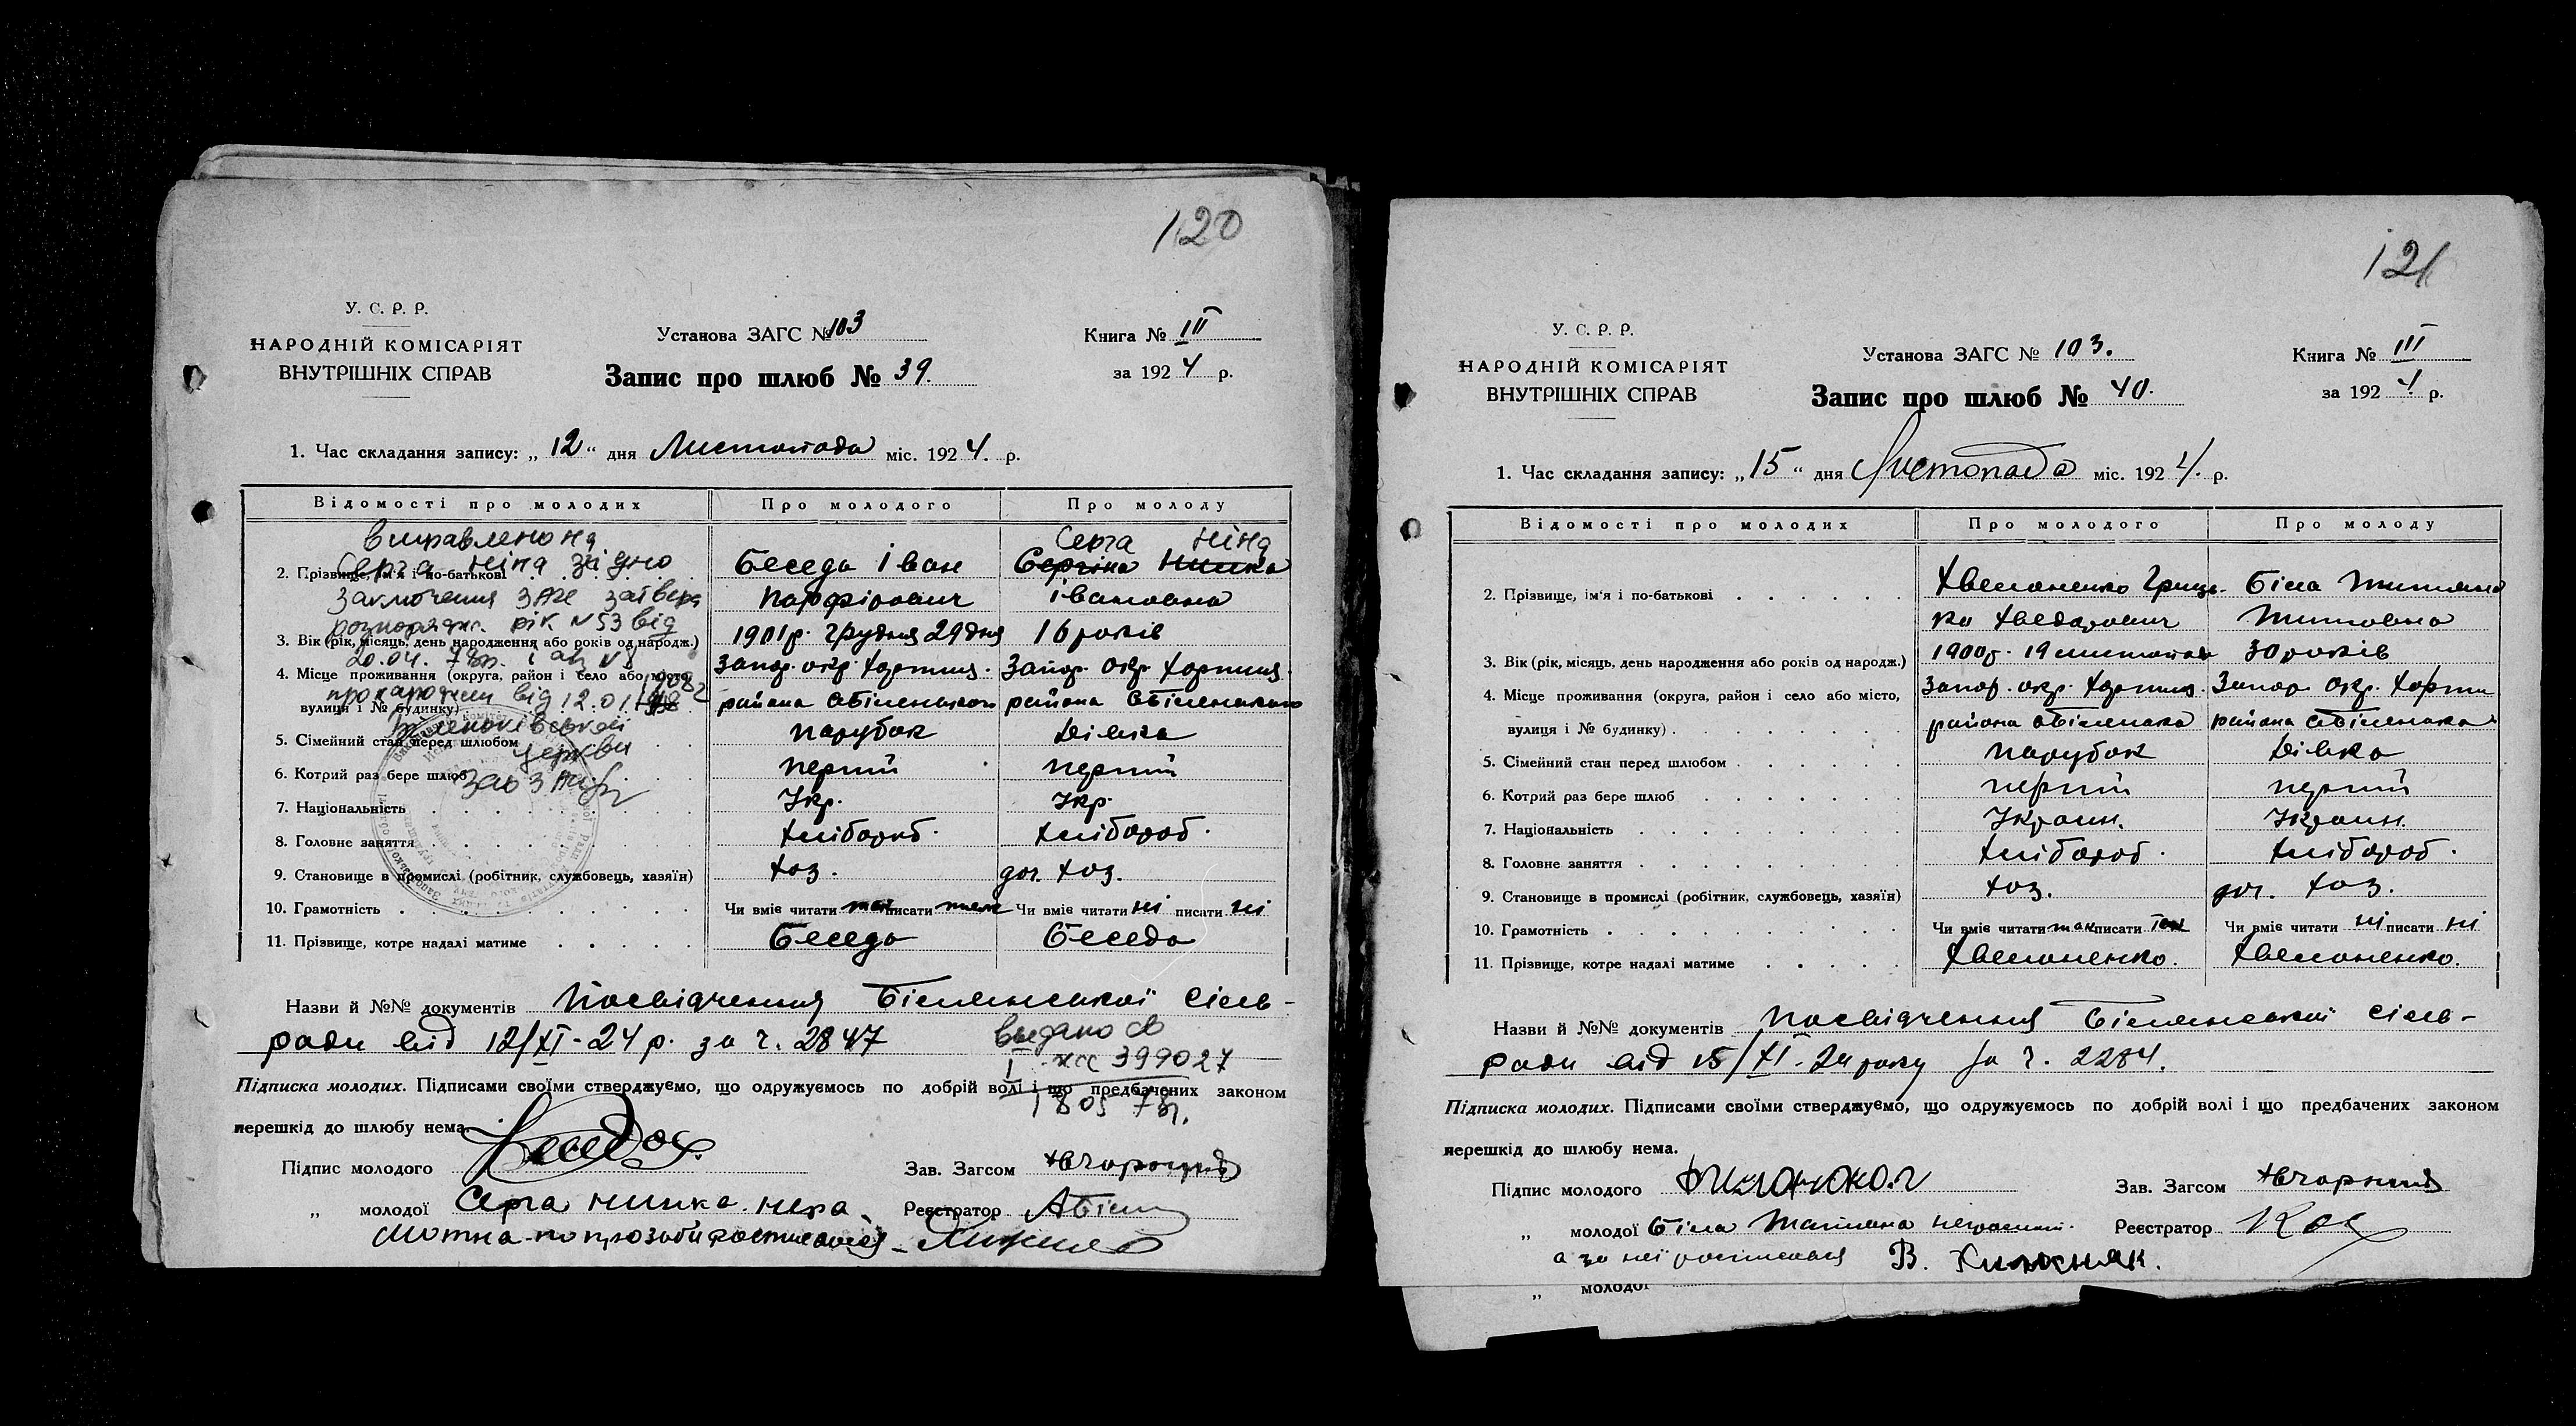 120
У. С. Р. Р.
НАРОДНІЙ КОМІСАРІЯТ
ВНУТРІШНІХ СПРАВ
Установа ЗАГС № 103
Запис про шлюб № 39.
Книга № III
за 1924 р.
1. Час складання запису: „ 12 “ дня Листопада міс. 1924. р.
Відомості про молодих Про молодого Про молоду
виправлено на Серга Ніна
Серга Ніна згідно
2. Прізвище, ім'я і по-батькові Беседа Іван Сергіна Нинка
заключення ЗАГС Порфірович Івановна
розпорядж. рік N 53 від
3. Вік (рік, місяць, день народження або років од народж.) 1901р. Грудня 29 дня 16 років
20.04. 78р. і
4. Місце проживання (округа, район і село або місто, Запор. окр. Хортиц. Запор. окр. Хортиц.
про народжен від 12.01.
вулиця і № будинку) района с Біленького района с Біленького
церкви
5. Сімейний стан перед шлюбом парубок дівка
6. Котрий раз бере шлюб перший перший
7. Національність Укр. Укр.
8. Головне заняття хлібороб. хлібороб.
9. Становище в промислі (робітник, службовець, хазяїн) хоз. доч. хоз.
10. Грамотність Чи вміє читати так писати так Чи вміє читати ні писати ні
11. Прізвище, котре надалі матиме Беседа Беседа
Назви й №№ документів Посвідчення Біленської сіль-
ради від 12/XI-24 р. за ч. 2847
выдано св
I жс 399027
1805 78р.
Підписка молодих. Підписами своїми стверджуємо, що одружуємось по добрій волі і що предбачених законом
перешкід до шлюбу нема.
Підпис молодого Беседа Зав. Загсом
„ молодої Серга Нинка негра- Реєстратор АБіл
мотна по прозьби росписався
121
У. С. Р. Р.
НАРОДНІЙ КОМІСАРІЯТ
ВНУТРІШНІХ СПРАВ
Установа ЗАГС № 103.
Запис про шлюб № 40.
Книга № III
за 1924 р.
1. Час складання запису: „ 15 “ дня Листопада міс. 1924. р.
Відомості про молодих Про молодого Про молоду
2. Прізвище, ім'я і по-батькові Хвилоненко Гриць- Біла Титяна
ко Хведорович Титовна
3. Вік (рік, місяць, день народження або років од народж.) 1900р. 19 листопада 30 років
4. Місце проживання (округа, район і село або місто, Запор. окр. Хортиц. Запор. окр. Хорти
вулиця і № будинку) района с Біленька района с Біленька
5. Сімейний стан перед шлюбом парубок дівка
6. Котрий раз бере шлюб перший перший
7. Національність Украин. Украин.
8. Головне заняття хлібороб. хлібороб.
9. Становище в промислі (робітник, службовець, хазяїн) хоз. доч. хоз.
10. Грамотність Чи вміє читати так писати так Чи вміє читати ні писати ні
11. Прізвище, котре надалі матиме Хвилоненко. Хвилоненко.
Назви й №№ документів посвідчення Біленської сіль-
ради від 15/XI-24 року за ч. 2284.
Підписка молодих. Підписами своїми стверджуємо, що одружуємось по добрій волі і що предбачених законом
перешкід до шлюбу нема.
Підпис молодого Зав. Загсом
„ молодої Біла Татиана Реєстратор
а за неї росписался В. Хижняк.
„ молодої